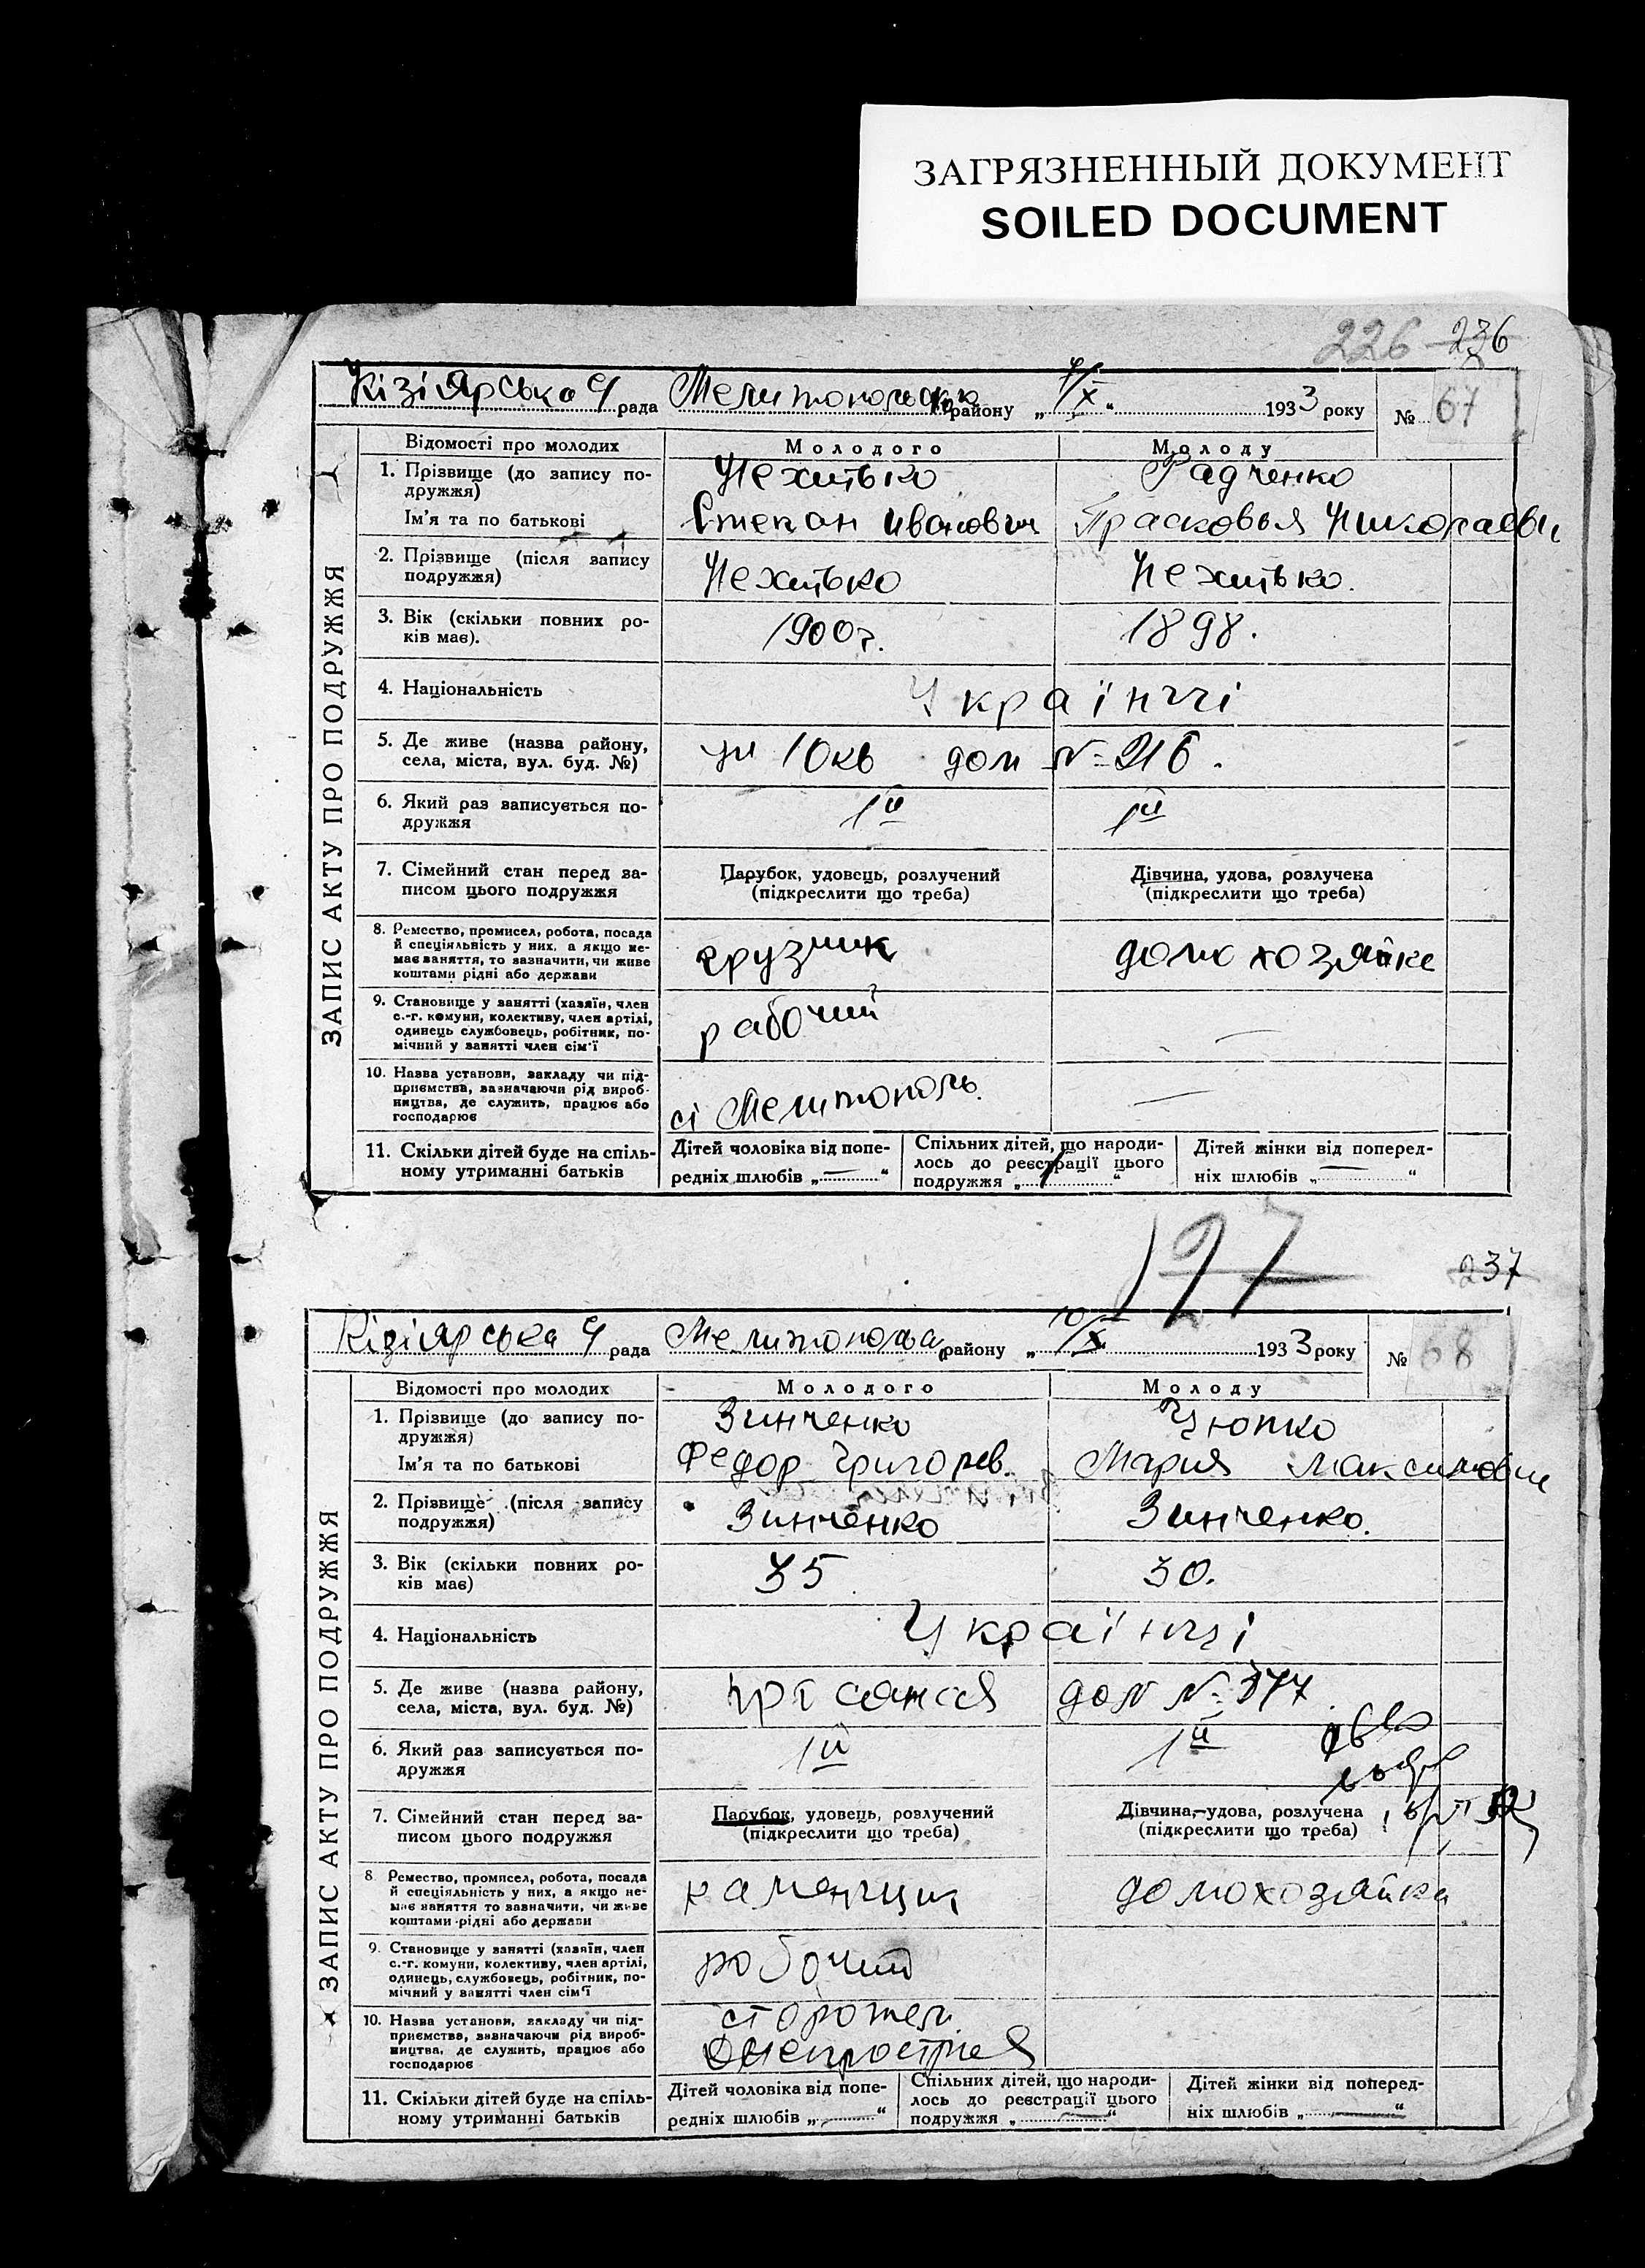 ЗАГРЯЗНЕННЫЙ ДОКУМЕНТ
SOILED DOCUMENT
226 236
Кізіярська рада Мелитопольск району „ /X “ 1933 року № 67
ЗАПИС АКТУ ПРО ПОДРУЖЖЯ
Відомості про молодих Молодого Молоду
1. Прізвище (до запису по-
дружжя)
Нехитько Радченко
Ім'я та по батькові Степан Иванович Прасковья Николаевн
2. Прізвище (після запису
подружжя)
Нехитько Нехитько.
3. Вік (скільки повних ро-
ків має).
1900г. 1898.
4. Національність Українці
5. Де живе (назва району,
села, міста, вул. буд. №)
10 кв дом №216.
6. Який раз записується по-
дружжя
1й 1й
7. Сімейний стан перед за-
писом цього подружжя
Парубок, удовець, розлучений
(підкреслити що треба)
Дівчина, удова, розлучена
(підкреслити що треба)
8. Ремество, промисел, робота, посада
й спеціяльність у них, а якщо не-
має заняття, то зазначити, чи живе
коштами рідні або держави
грузчик домохозяйке
9. Становище у занятті (хазяїн, член
с.-г. комуни, колективу, член артілі,
одинець службовець, робітник, по-
мічний у занятті член сім'ї
рабочий
10. Назва установи, закладу чи під-
приємства, зазначаючи рід вироб-
ництва, де служить, працює або
господарює
ст Мелитополь.
11. Скільки дітей буде на спіль-
ному утриманні батьків
Дітей чоловіка від попе-
редніх шлюбів „ — “
Спільних дітей, що народи-
лось до реєстрації цього
подружжя „ “
Дітей жінки від поперед-
ніх шлюбів „ “
197 237
Кізіярська рада Мелитопольс району „ 10/X “ 1933 року № 68
ЗАПИС АКТУ ПРО ПОДРУЖЖЯ
Відомості про молодих Молодого Молоду
1. Прізвище (до запису по-
дружжя)
Зинченко Цюпко
Ім'я та по батькові Федор Григорев. Мария Максимовне
2. Прізвище (після запису
подружжя)
Зинченко Зинченко.
3. Вік (скільки повних ро-
ків має)
35 30.
4. Національність Українці
5. Де живе (назва району,
села, міста, вул. буд. №)
дом № 377
6. Який раз записується по-
дружжя
1й 1й
7. Сімейний стан перед за-
писом цього подружжя
Парубок, удовець, розлучений
(підкреслити що треба)
Дівчина, удова, розлучена
(підкреслити що треба)
8. Ремество, промисел, робота, посада
й спеціяльність у них, а якщо не-
має заняття то зазначити, чи живе
коштами рідні або держави
каменщик домохозяйка
9. Становище у занятті (хазяїн, член
с.-г. комуни, колективу, член артілі,
одинець, службовець, робітник, по-
мічний у занятті член сім'ї
робочий
10. Назва установи, закладу чи під-
приємства, зазначаючи рід вироб-
ництва, де служить, працює або
господарює
сторожем
11. Скільки дітей буде на спіль-
ному утриманні батьків
Дітей чоловіка від попе-
редніх шлюбів „ — “
Спільних дітей, що народи-
лось до реєстрації цього
подружжя „ — “
Дітей жінки від поперед-
ніх шлюбів „ — “